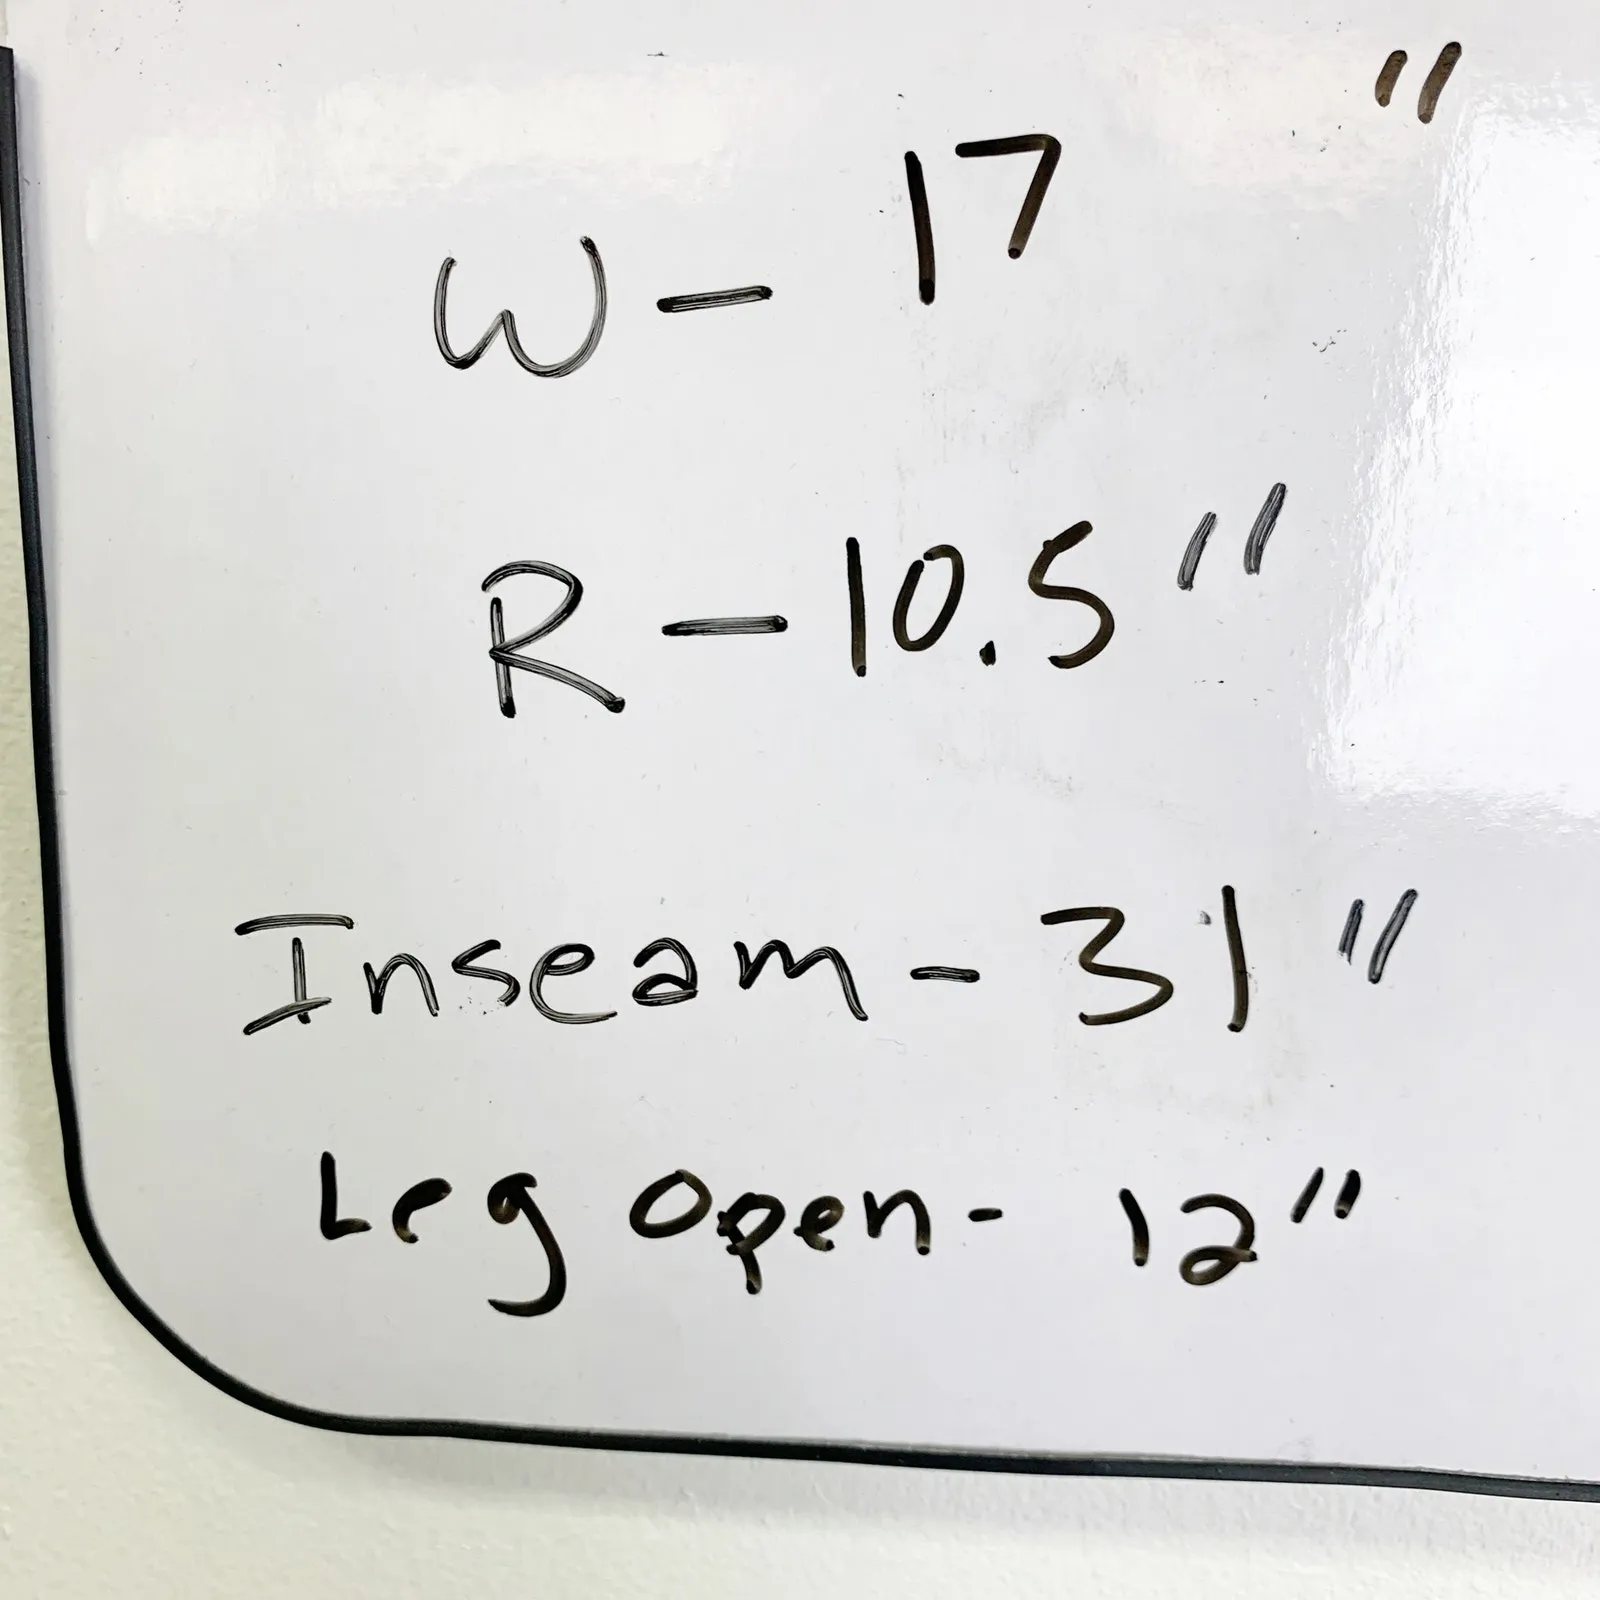 W - 17 "
R - 10.5 "
Inseam - 31 "
Leg Open - 12 "